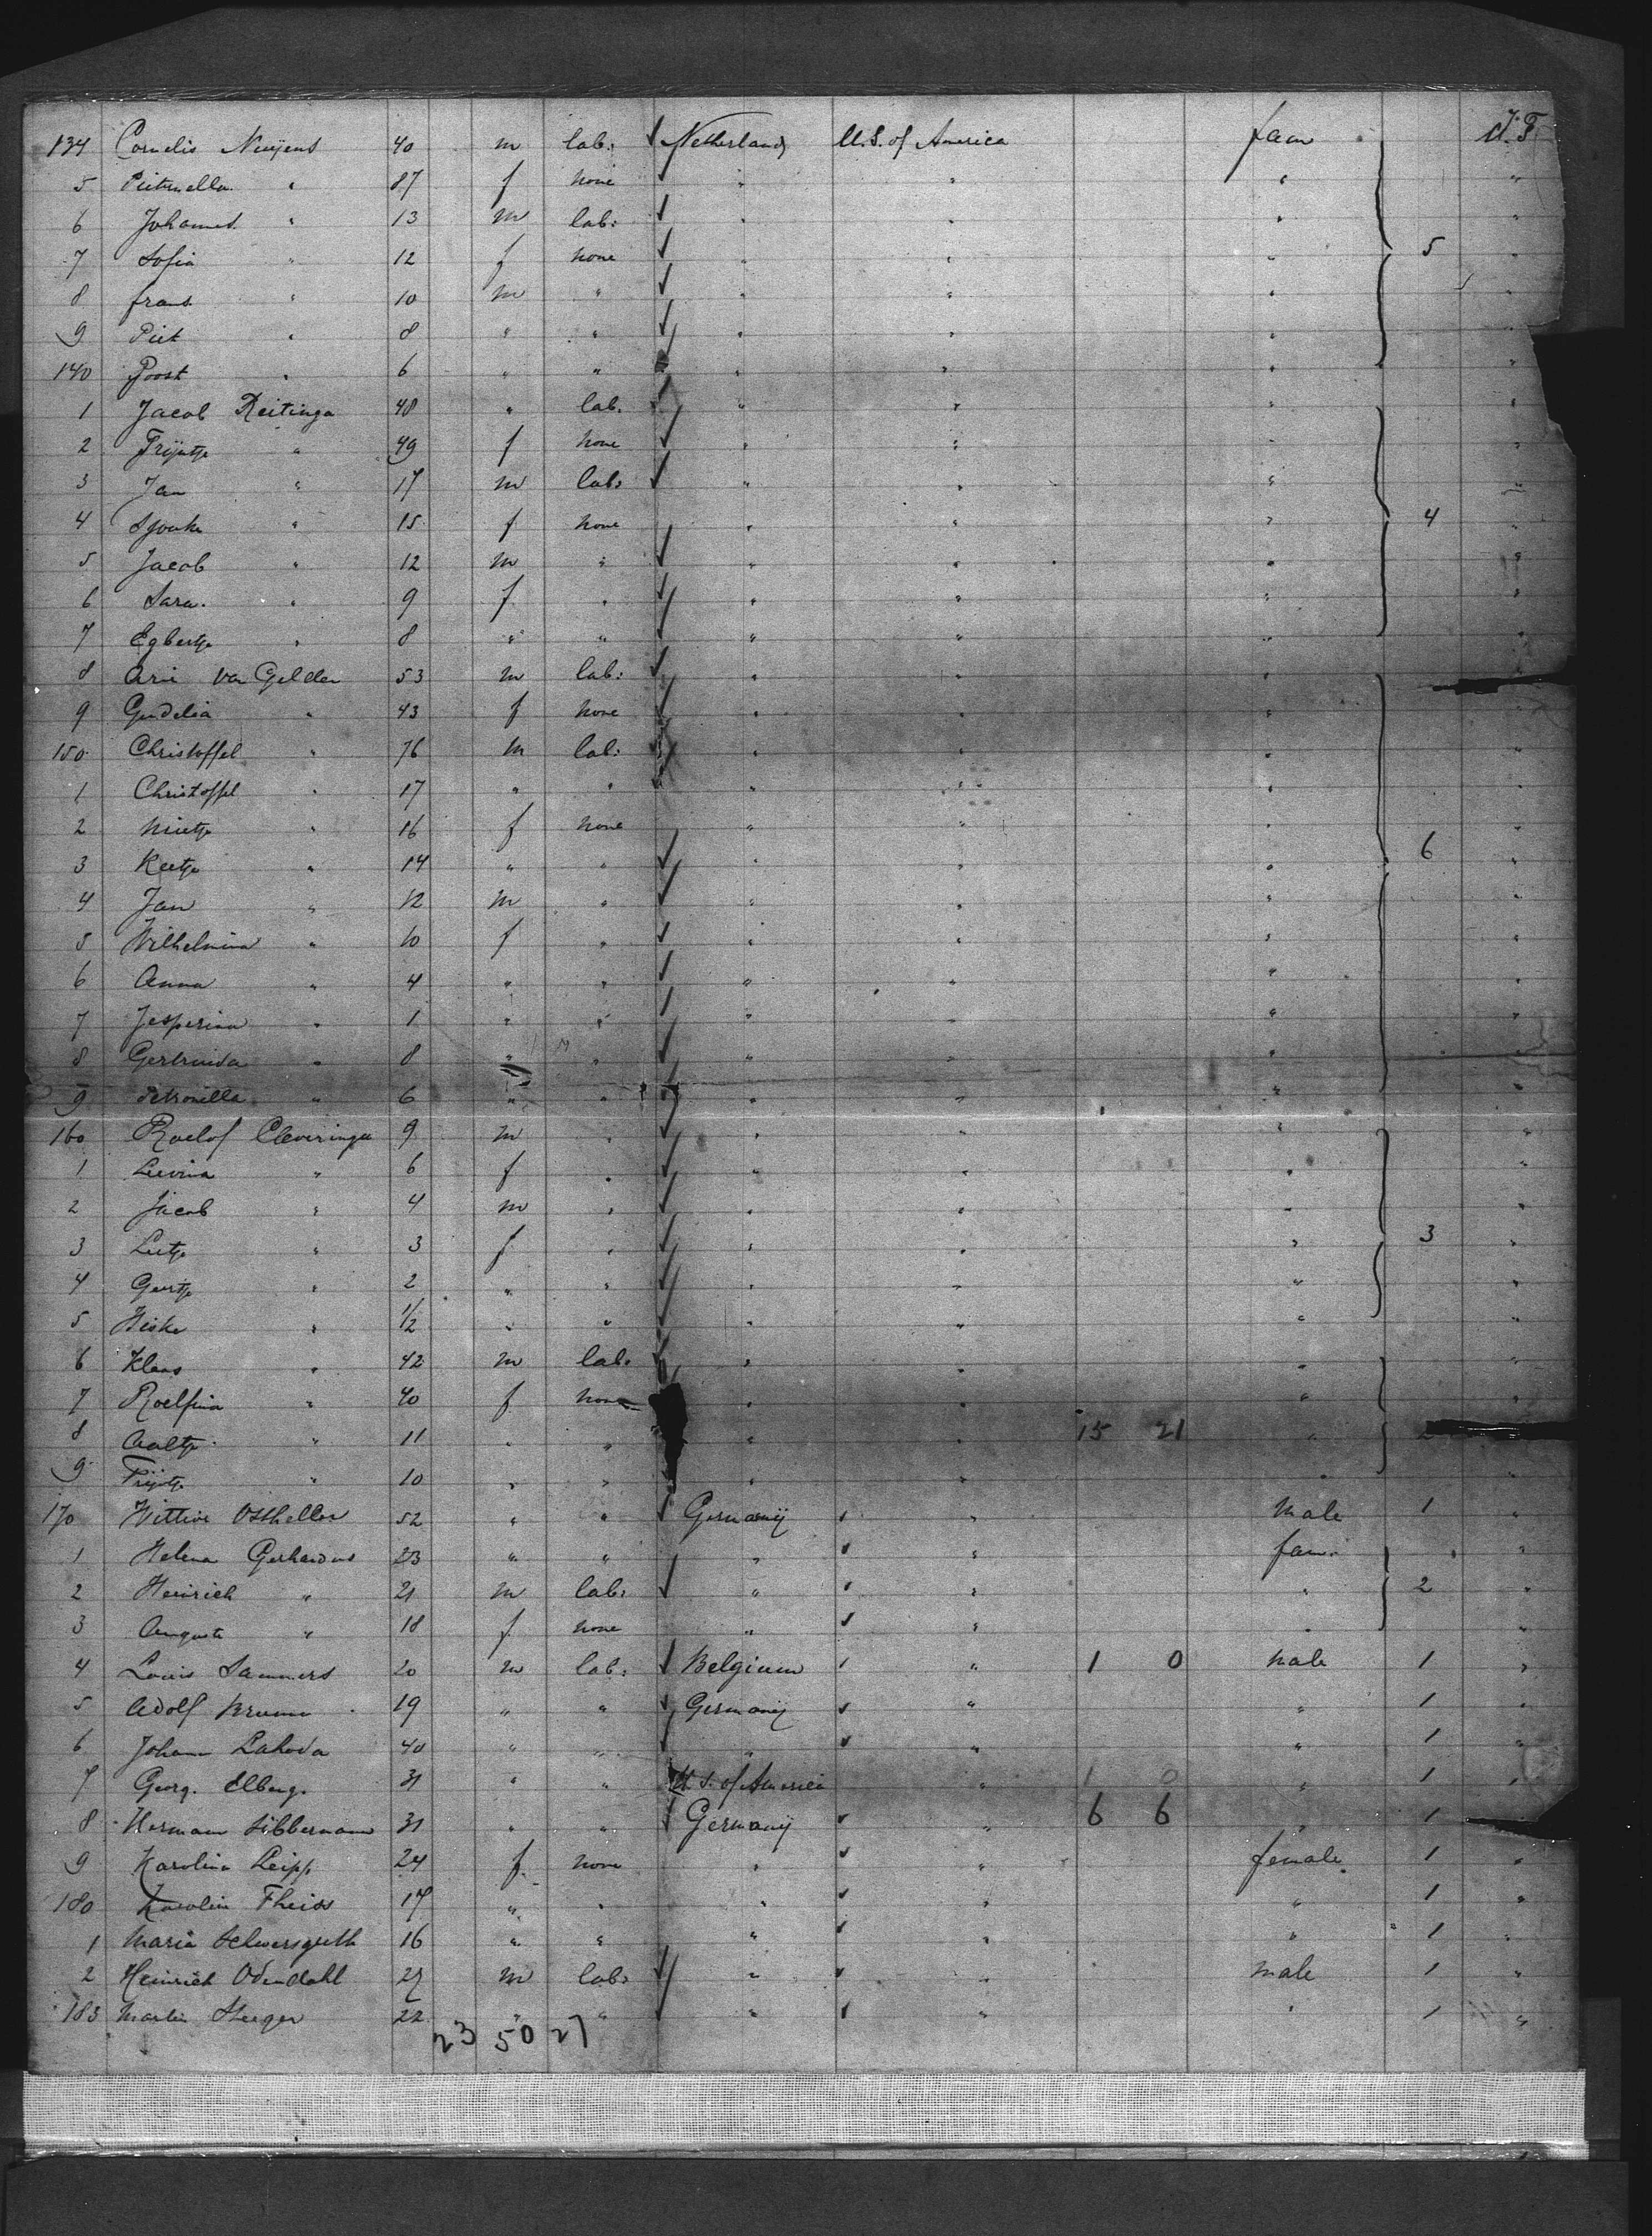 134 Cornelis Nuijens 40 m lab: Netherlands U.S. of America fam
5 " 87 f none " " "
6 Johannes " 13 m lab: " " "
7 Sofia " 12 f none " " " 5 "
8 frans " 10 m " " " " "
9 Piet " 8 " " " " " "
140 Joost " 6 " " " " " "
1 Jacob Reitinga 48 " lab. " " " "
2 Trijntje " 49 f none " " " "
3 Jan " 17 m lab: " " " "
4 Sjouke " 15 f none " " " 4 "
5 Jacob " 12 m " " " " "
6 Sara " 9 f " " " " "
7 Egbertje " 8 " " " " " "
8 Arie van Gelder 53 m lab: " " " "
9 Gudelia " 43 f none " " " "
150 Christoffel " 76 m lab: " " " "
1 Christoffel " 17 " " " " " "
2 " 16 f none " " " "
3 Keetje " 14 " " " " " 6 "
4 Jan " 12 m " " " " "
5 Wilhelmina " 10 f " " " " "
6 Anna " 4 " " " " " "
7 Jesperina " 1 " " " " " "
8 Gertruida " 8 " " " " " "
9 Petronilla " 6 " " " " " "
160 Roelof Cleveringa 9 m " " " " "
1 " 6 f " " " " "
2 Jacob " 4 m " " " " "
3 " 3 f " " " " 3 "
4 Geertje " 2 " " " " " "
5 Hiske " 1/2 " " " " " "
6 Klaas " 42 m lab: " " " "
7 Roelfina " 40 f none " " " "
8 Aaltje " 11 " " " " 15 21 " 2
9 Trijntje " 10 " " " " " "
170 52 " " Germany " male 1 "
1 Helena Gerhardus 23 " " " " fam. "
2 Heinrich " 21 m lab: " " " 2 "
3 Auguste " 18 f none " " " "
4 Louis Sammers 20 m lab: Belgium " 1 0 male 1 "
5 Adolf 19 " " Germany " " 1 "
6 Johann Lahoda 40 " " " " " 1 "
7 Georg. Elberg. 31 " " U.S. of America " 1 0 " 1 "
8 Herman Sibbermann 31 " " Germany " 6 6 " 1 "
9 Karolina Leipp 24 f none " " female 1 "
180 Karolin Theiss 17 " " " " " 1 "
1 Maria 16 " " " " " 1 "
2 Heinrich Odendahl 27 m lab: " " male 1 "
183 Martin Steeger 22 " " " " " 1 "
23 50 27